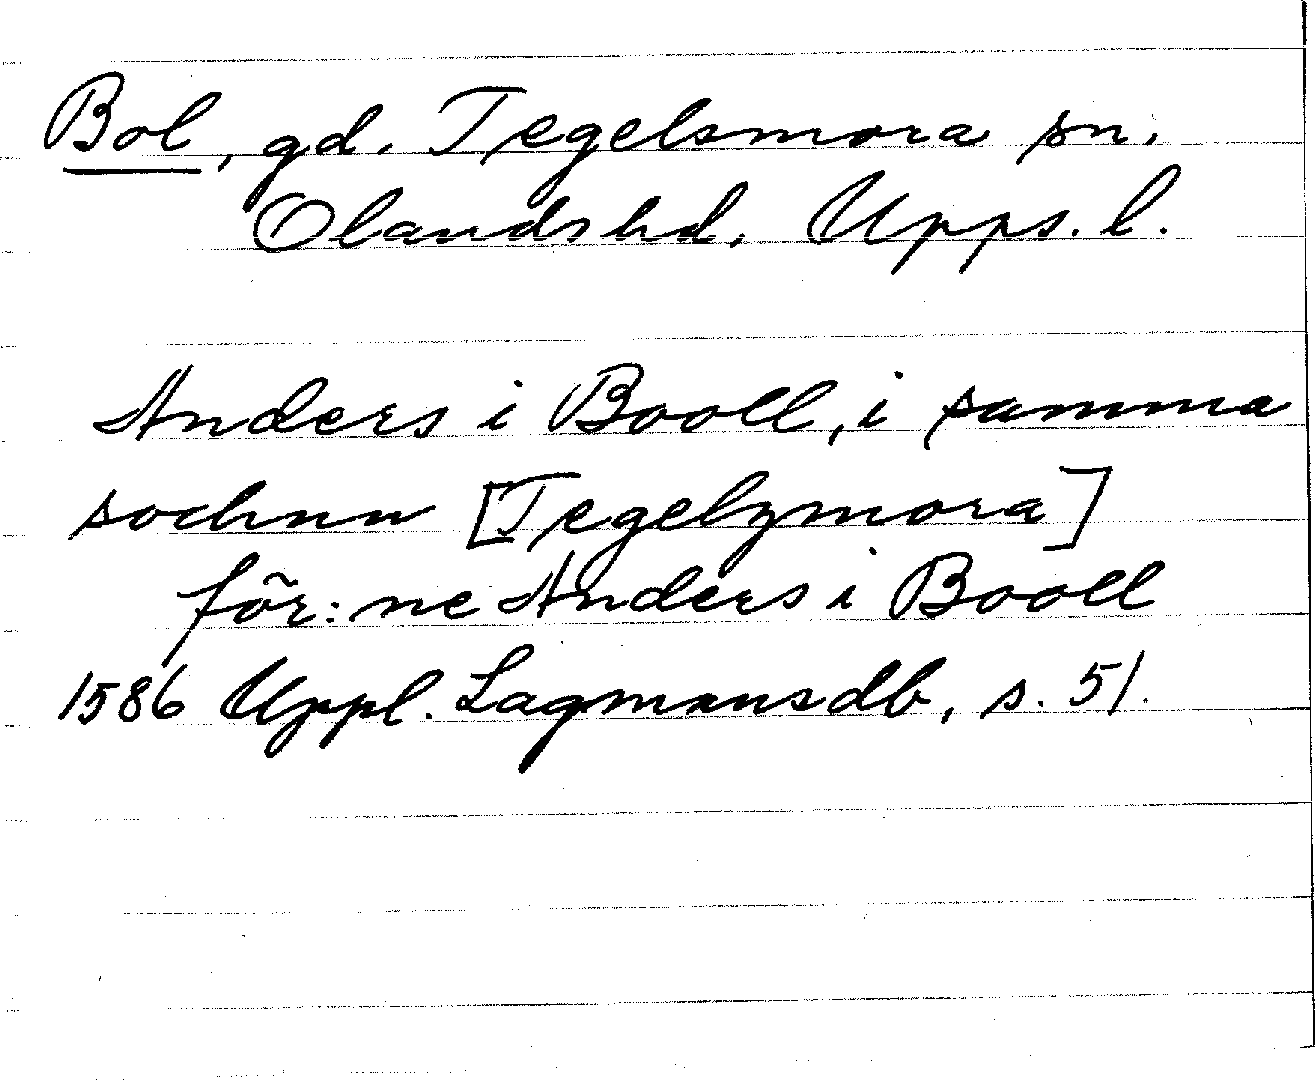 Bol, gd. Tegelsmora sn.
Olands hd. Upps. l.
Anders i Booll, i samma
sochnn [Tegelzmora]
för:ne Anders i Booll
1586 Uppl. Lagmansdb, s. 51.